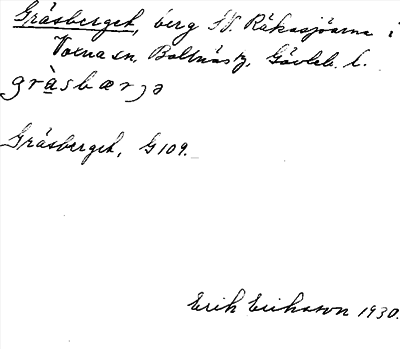 Gråsberget, berg SV. Råkasjöarna i
Voxna sn, Bollnäs tg, Gävleb. l.
gràsbærjə
Gråsberget, G109.
Erik Eriksson 1930.